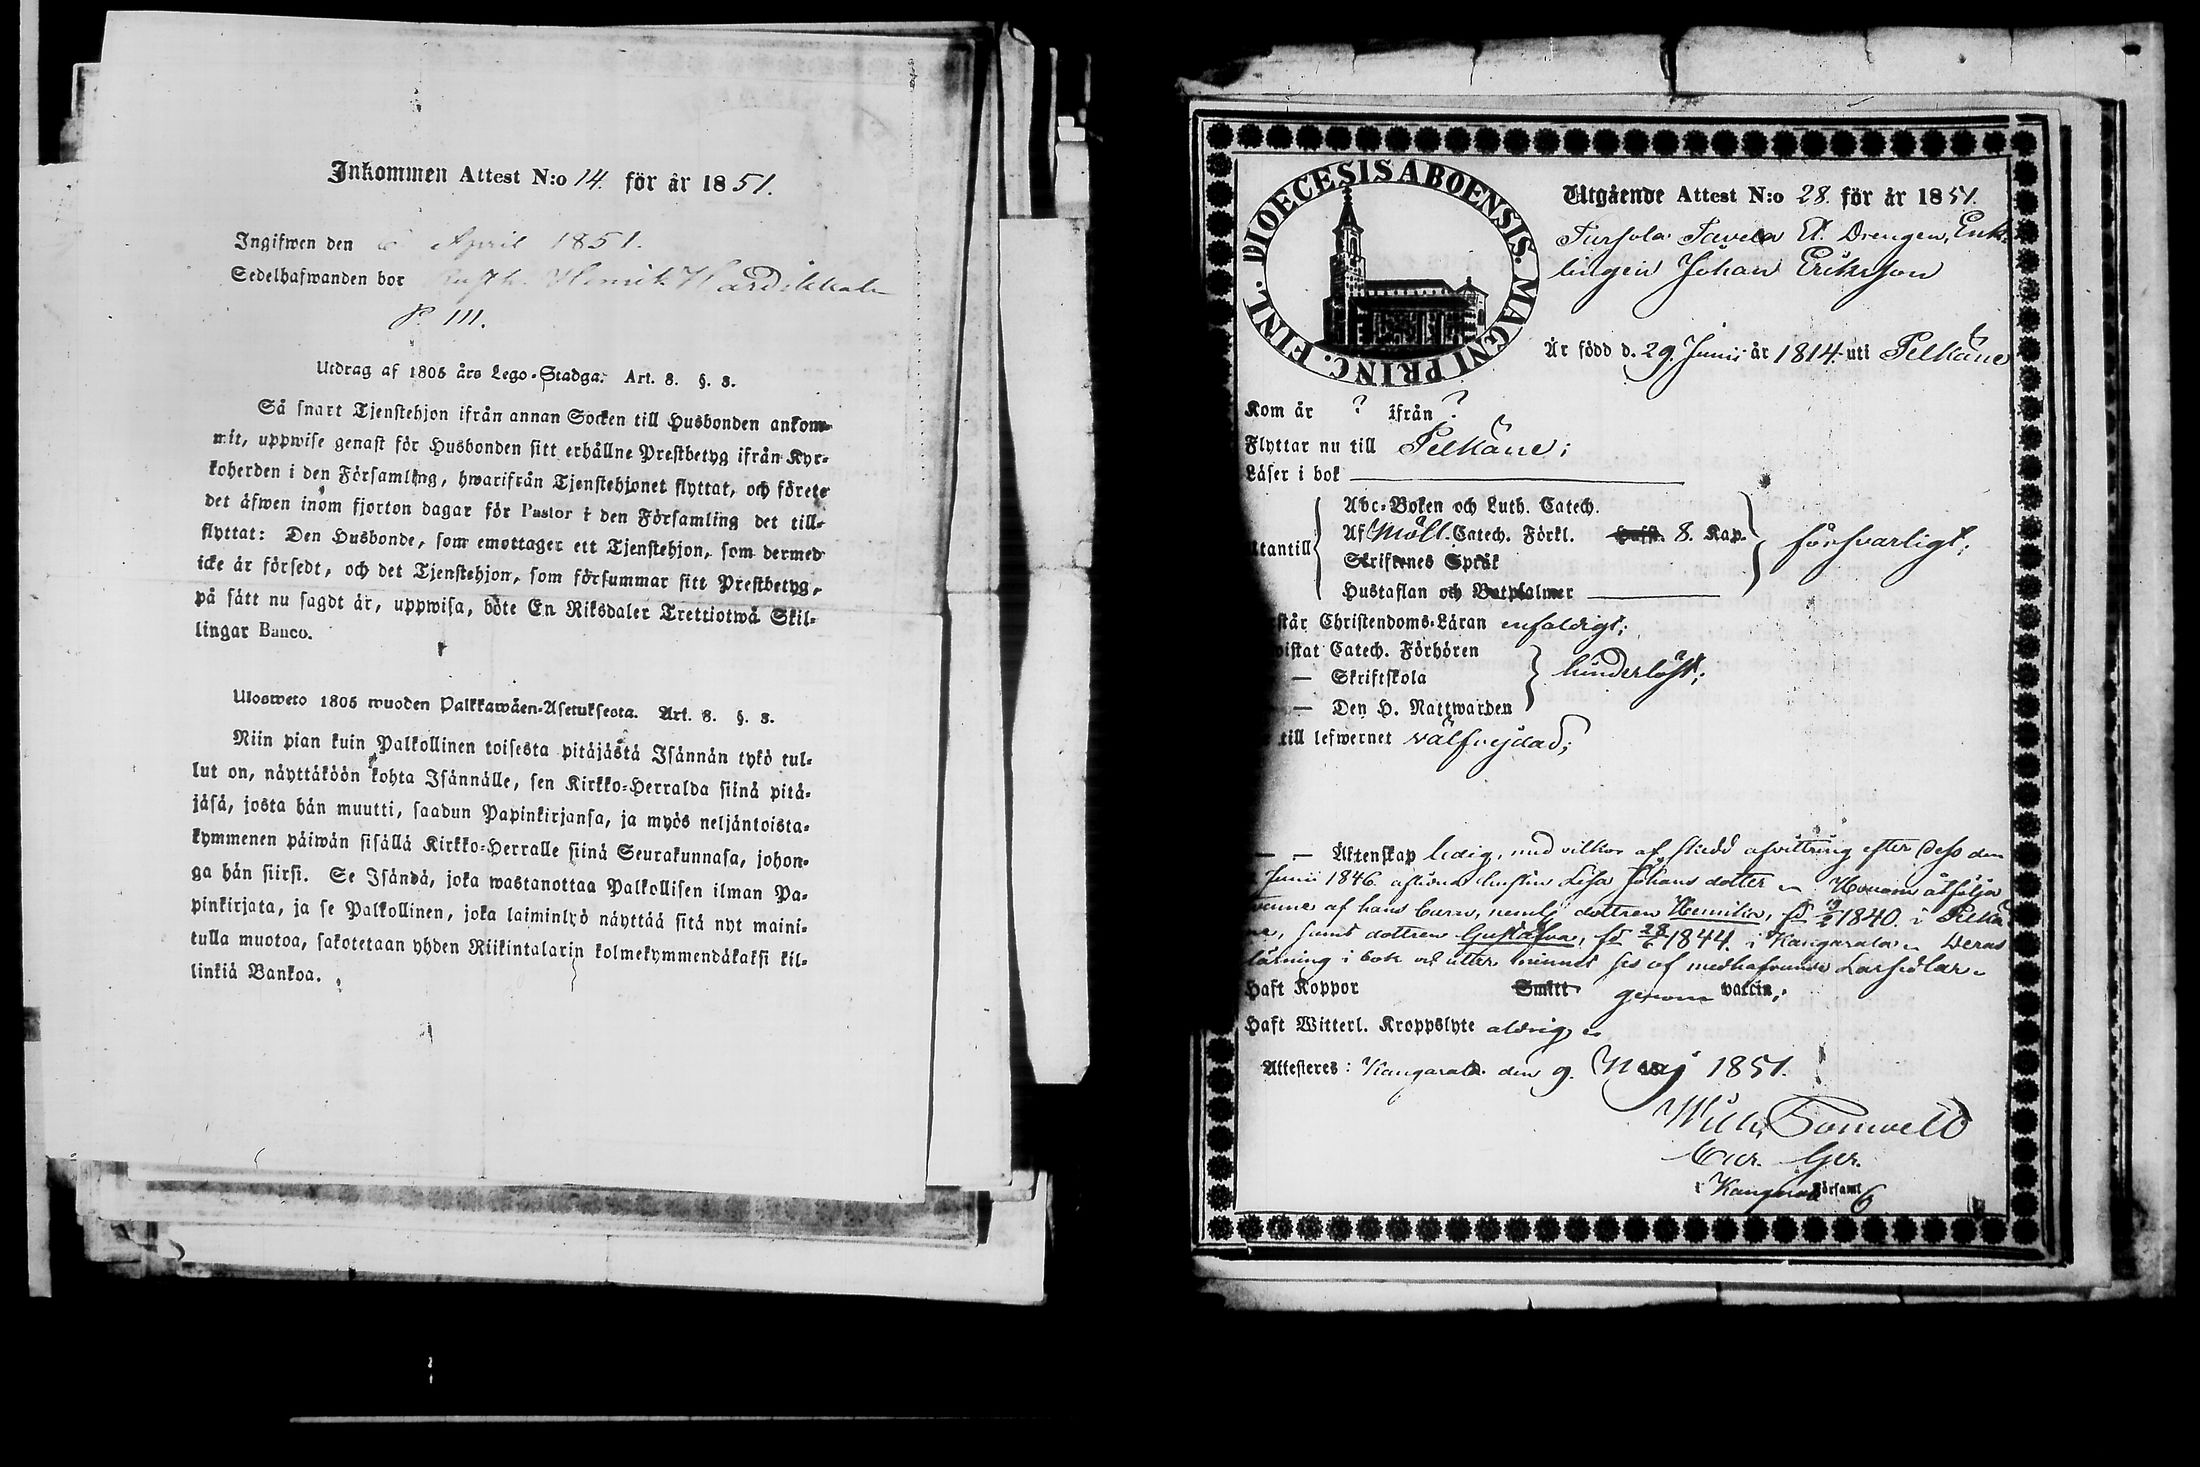 Inkommen Attest N:o 14. för år 1851.
Ingifwen den 6 April 1851.
Sedelhafwanden bor Rusth. Henrik Hardikkala
P. 111.
Utdrag af 1805 års Lego-Stadga. Art. 8. §. 3.
Så snart Tjenstehjon ifrån annan Socken till Husbonden ankom-
mit, uppwise genast för Husbonden sitt erhållne Prestbetyg ifrån Kyr-
koherden i den Församling, hwarifrån Tjenstehjonet flyttat, och förete
det äfwen inom fjorton dagar för Pastor i den Församling det till-
flyttat: Den Husbonde, som emottager ett Tjenstehjon, som dermed
icke är försedt, och det Tjenstehjon, som försummar sitt Prestbetyg,
på sätt nu sagdt är, uppwisa, böte En Riksdaler Trettiotwå Skil-
lingar Banco.
Ulosweto 1805 wuoden Palkkawäen-Asetuksesta. Art. 8. §. 3.
Niin pian kuin Palkollinen toisesta pitäjästä Isännän tykö tul-
lut on, näyttäköön kohta Isännälle, sen Kirkko-Herralda siinä pitä-
jäsä, josta hän muutti, saadun Papinkirjansa, ja myös neljäntoista-
kymmenen päiwän sisällä Kirkko-Herralle siinä Seurakunnasa, johon-
ga hän siirsi. Se Isändä, joka wastanottaa Palkollisen ilman Pa-
pinkirjata, ja se Palkollinen, joka laiminlyö näyttää sitä nyt maini-
tulla muotoa, sakotetaan yhden Riikintalarin kolmekymmendäkaksi kil-
linkiä Bankoa.
DIOECESIS ABOENSIS. MAGNI PRINC. FINL.
Utgående Attest N:o 28. för år 1851.
Tursola Tavela Drengen, Enk-
lingen Johan Eriksson
Är född d. 29. Junii år 1814 uti Pelkäne
Kom år ? ifrån ?
Flyttar nu till Pelkäne;
Läser i bok
Abc-Boken och Luth. Catech.
Utantill Af Möll. Catech. Förkl. 8. Kap. försvarligt;
Skriftenes Språk
Hustaflan och Botpsalmer
står Christendoms-Läran enfaldigt;
wistat Catech. Förhören
— Skriftskola hinderlöst;
— Den H. Nattwarden
till lefwernet välfrejdad;
— — Äktenskap ledig, med vilkor af skedd afvittring efter dess den
Junii 1846 aflidna hustru Lisa Johans dotter Honom åtfölja
tvenne af hans barn, neml. dottren Hemilia, fd 19/2 1840. i Pelkä-
ne, samt dottren Gustafva, fd 28/6 1844. i Kangasala. Deras
läsning i bok och utter minnet ses af medhafvande Läsesedlar.
Haft Koppor Smitt genom vaccin;
Haft Witterl. Kroppslyte aldrig
Attesteres: Kangasala den 9. Maj 1851.
Cur. Ger.
i Kangasala Församl